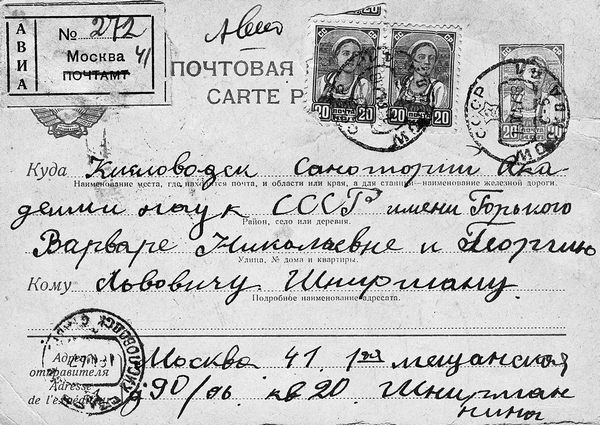 АВИА
№ 272
Москва 41
ПОЧТАМТ
Авио
ПОЧТОВАЯ
CARTE P
20 ПОЧТА СССР 20
20 20
20
СССР МОСКВА
Куда Кисловодск Санатории Ака
Наименование места, где находится почта, и области или края, а для станции—наименование железной дороги.
демии наук СССР имени Горького
Район, село или деревня.
Варваре Николаевне и Георгию
Улица, № дома и квартиры.
Кому Львовичу Шнирману
Подробное наименование адресата.
КИСЛОВОДСК
Адрес отправителя Москва 41. 1ая мещанская
Adresse de l'expéditeur д 90/96 кв 20 Шнирман
нины